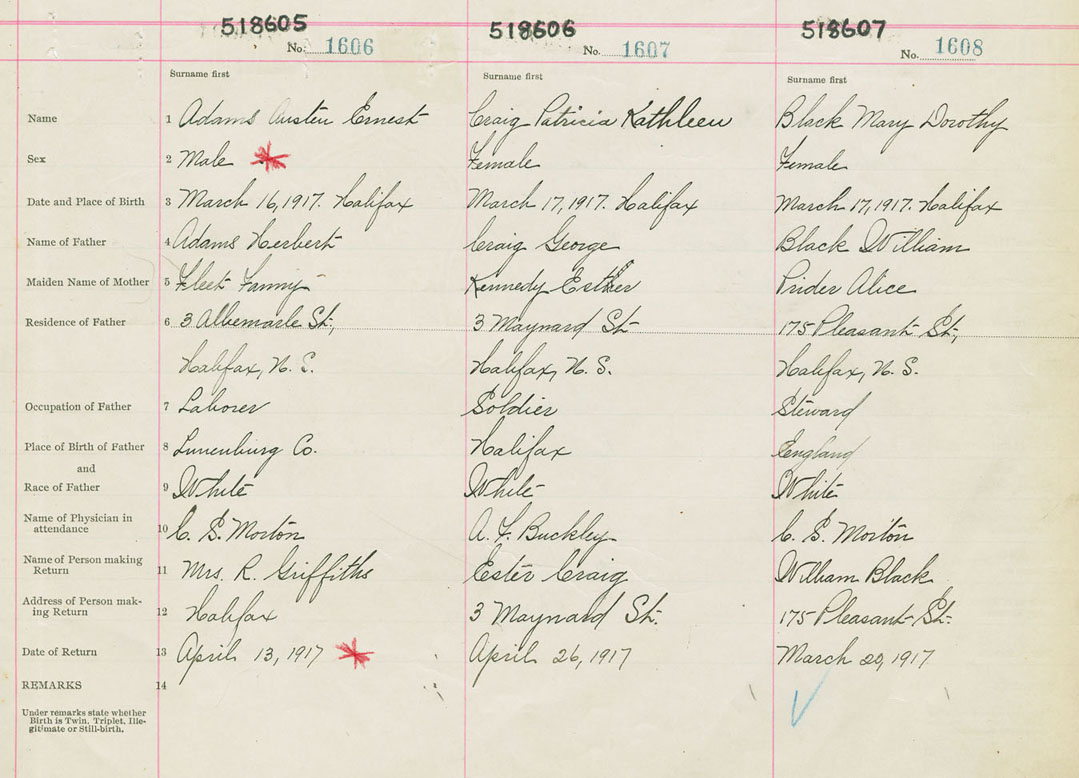 518605 518606 518607
No. 1606 No. 1607 No. 1608
Surname first Surname first Surname first
Name 1 Adams Austen Ernest Craig Patricia Kathleen Black Mary Dorothy
Sex 2 Male Female Female
Date and Place of Birth 3 March 16, 1917. Halifax March 17, 1917. Halifax March 17, 1917. Halifax
Name of Father 4 Adams Herbert Craig George Black William
Maiden Name of Mother 5 Fleet Fanny Kennedy Esther Prider Alice
Residence of Father 6 3 Albemarle St., 3 Maynard St. 175 Pleasant St.,
Halifax, N. S. Halifax, N. S. Halifax, N. S.
Occupation of Father 7 Laborer Soldier Steward
Place of Birth of Father 8 Lunenburg Co. Halifax England
and
Race of Father 9 White White White
Name of Physician in
attendance 10 C. S. Morton A. F. Buckley C. S. Morton
Name of Person making
Return 11 Mrs. R. Griffiths Ester Craig William Black
Address of Person mak-
ing Return 12 Halifax 3 Maynard St. 175 Pleasant St.
Date of Return 13 April 13, 1917 April 26, 1917 March 20, 1917
REMARKS 14
Under remarks state whether
Birth is Twin, Triplet, Ille-
gitimate or Still-birth.